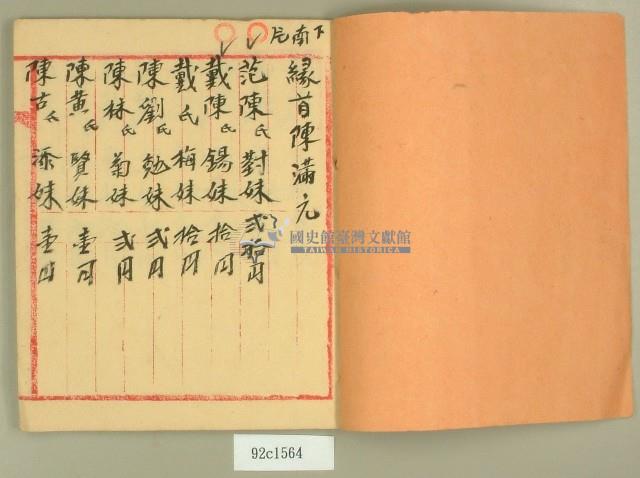 下南片
緣首陳滿元
范陳氏對妹貳拾円
戴陳氏錫妹拾円
戴氏梅妹拾円
陳劉氏勉妹貳円
陳林氏菊妹貳円
陳黄氏賢妹壹円
陳古氏添妹壹円
國史館臺灣文獻館
TAIWAN HISTORICA
92c1564